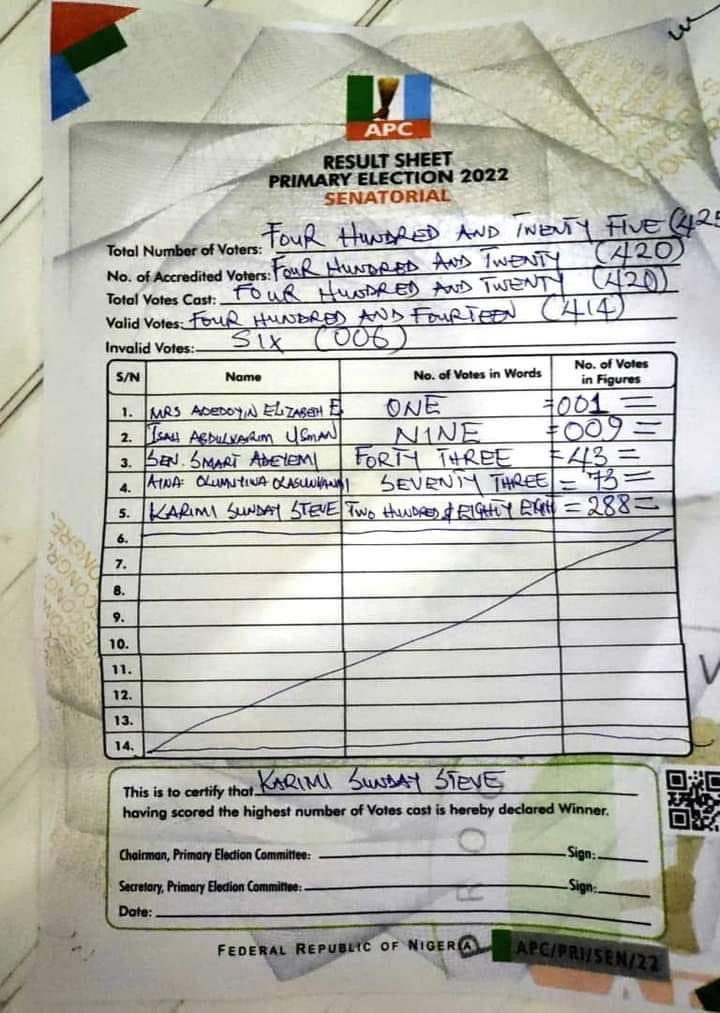 APC
RESULT SHEET
PRIMARY ELECTION 2022
SENATORIAL
Total Number of Voters: FOUR HUNDRED AND TWENTY FIVE (425
No. of Accredited Voters: FOUR HUNDRED AND TWENTY (420)
Total Votes Cast: FOUR HUNDRED AND TWENTY (420)
Valid Votes: FOUR HUNDRED AND FOURTEEN (414)
Invalid Votes: SIX (006)
S/N Name No. of Votes in Words No. of Votes in Figures
1. MRS ADEDOYIN ELIZABETH E. ONE =001=
2. ISAH ABDULKARIM USMAN NINE =009=
3. SEN. SMART ADEYEMI FORTY THREE =43=
4. SEVENTY THREE =73=
5. KARIMI SUNDAY STEVE TWO HUNDRED & EIGHTY EIGHT =288=
6.
7.
8.
9.
10.
11.
12.
13.
14.
This is to certify that KARIMI SUNDAY STEVE
having scored the highest number of Votes cast is hereby declared Winner.
Chairman, Primary Election Committee: Sign:
Secretary, Primary Election Committee: Sign:
Date:
FEDERAL REPUBLIC OF NIGERIA APC/PRI/SEN/22